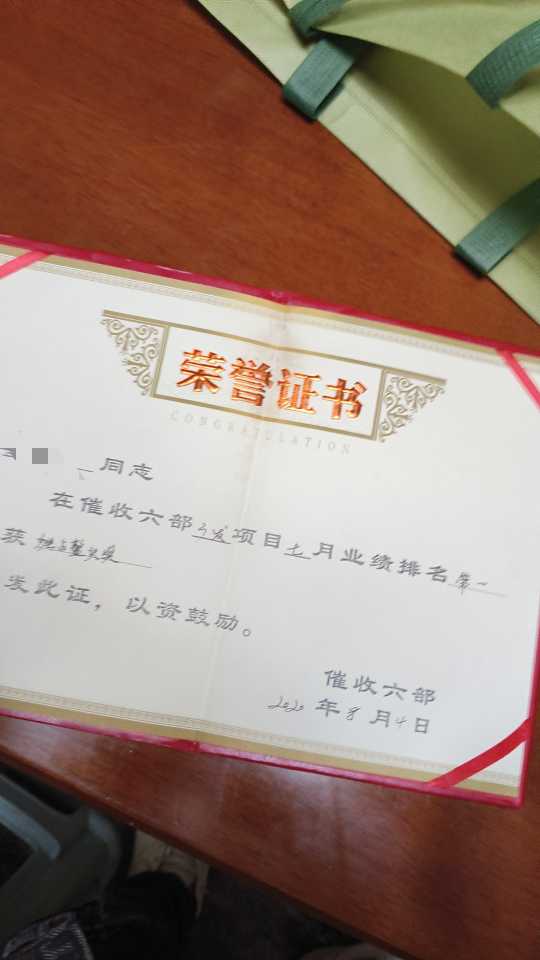 荣誉证书
CONGRATULATION
同志
在催收六部广发项目七月业绩排名第一
获
发此证，以资鼓励。
催收六部
2020年8月4日